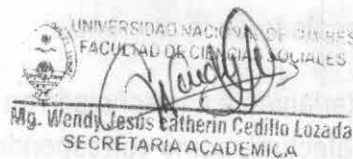 UNIVERSIDAD NACIONAL DE TUMBES
FACULTAD DE CIENCIAS SOCIALES
Mg. Wendy Jesús Catherin Cedillo Lozada
SECRETARIA ACADEMICA